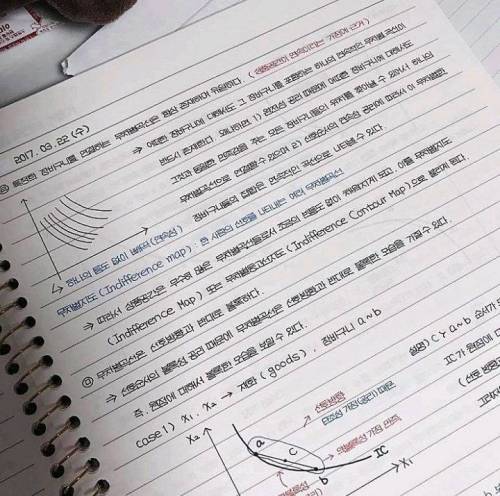 2017. 03. 22 (수)
㉢ 특정한 장바구니를 연결하는 무차별곡선은 항상 존재하며 유일하다. (상품공간이 연속이라는 가정에 근거)
→ 어떠한 장바구니에 대해서도 그 장바구니를 포함하는 하나의 연속적인 무차별곡선이
반드시 존재한다. 왜냐하면 1) 완전성 공리 때문에 어떠한 장바구니에 대해서도
그것과 동일한 만족감을 주는 모든 장바구니들의 위치를 찾아낼 수 있어서 하나의
무차별곡선으로 연결할 수 있으며 2) 선호순서의 연속성 공리에 따라서 이 무차별한
장바구니들의 집합은 연속적인 곡선으로 나타날 수 있다.
↳ 하나의 틈도 없이 빽빽이 (연속성)
무차별지도 (Indifference map) : 한 사람의 선호를 나타내는 여러 무차별곡선
→ 따라서 상품공간은 무수히 많은 무차별곡선들로서 조금의 빈틈도 없이 채워지게 되고, 이를 무차별지도
(Indifference Map) 또는 무차별등고선지도 (Indifference Contour Map)으로 불리게 된다.
㉣ 무차별곡선은 선호방향과 반대로 볼록하다.
→ 선호순서의 볼록성 공리 때문에 무차별곡선은 선호방향과 반대로 볼록한 모습을 가질 수 있다.
즉, 원점에 대해서 볼록한 모습을 보일 수 있다.
case 1) X₁, X₂ → 재화 (goods), 장바구니 a~b
설명) C > a~b 순서가
IC가 원점에 대
(선호 방향
X₂
선호방향
단조성 가정(공리) 때문
a
c
b
볼록성 가정 만족
IC
X₁